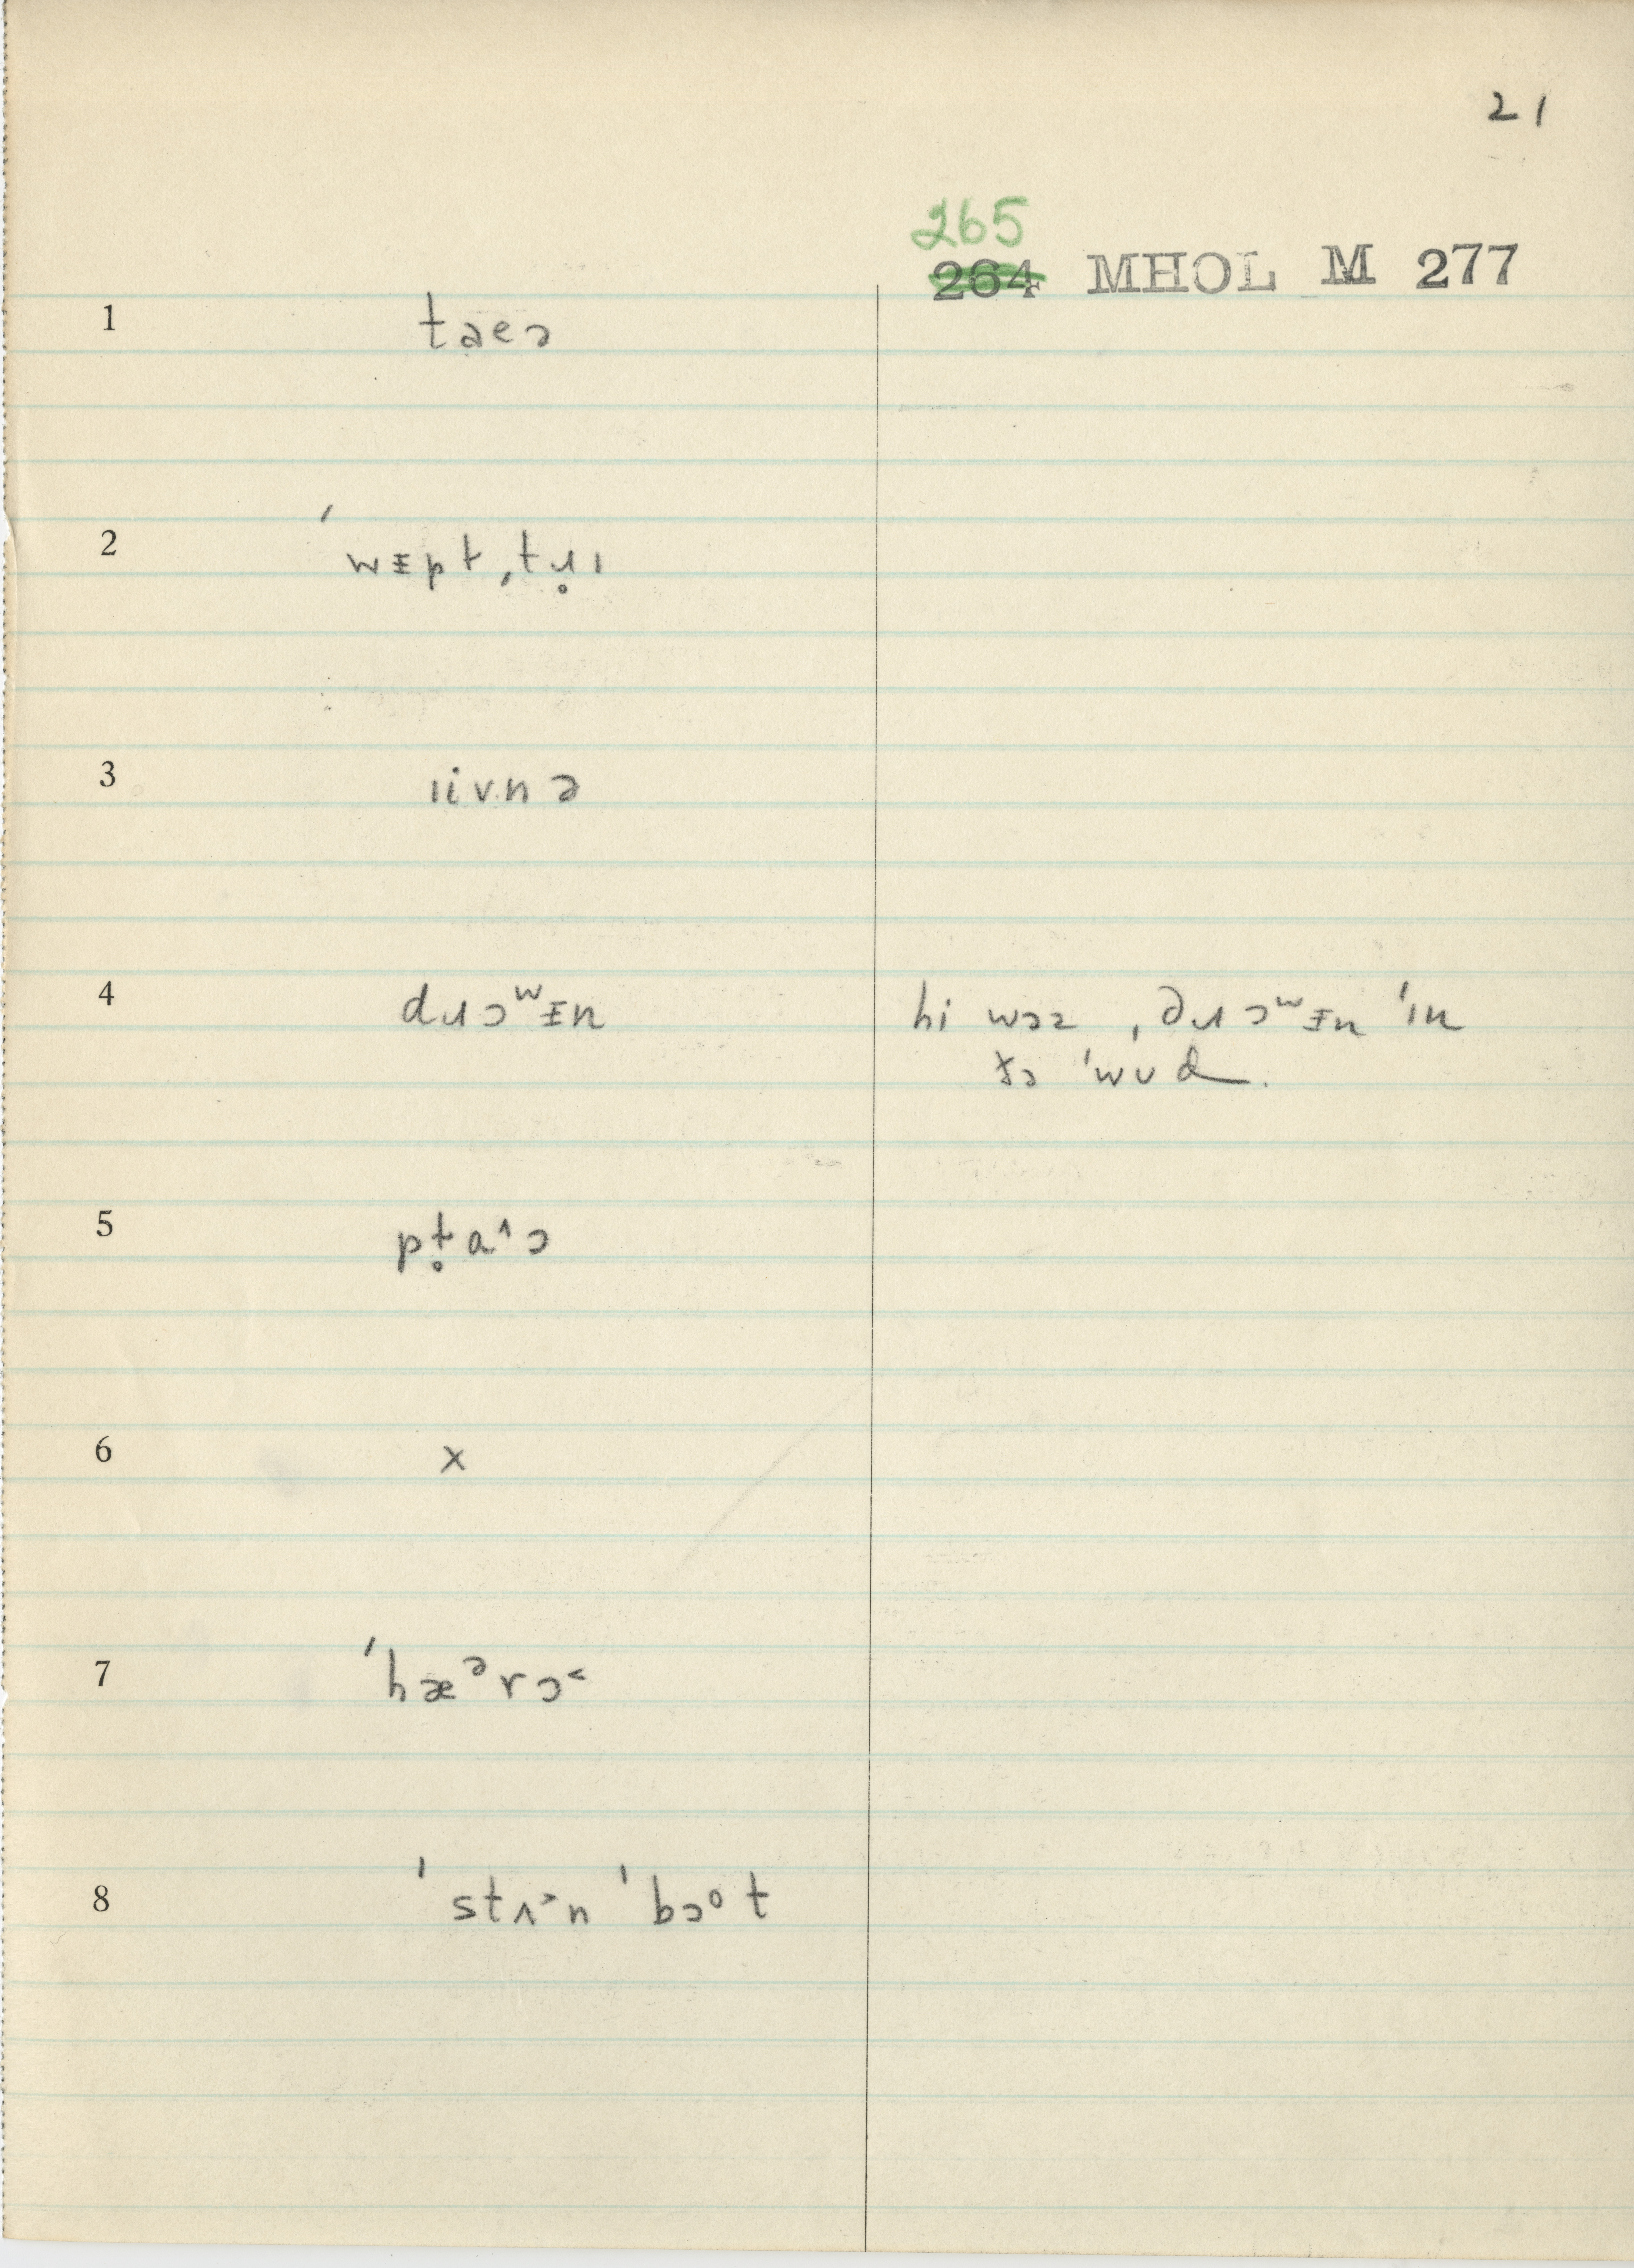 21
265
264 MHOL M 277
1 taeɔ
2 ˈwɪpt ˌtɹ̥ɪ
3 ıivnə
4 dɹɔʷɪn hi wɔz ˌdɹɔʷɪn ˈɪn
ðə ˈwʊd.
5 pt̥aˆɔ
6 x
7 ˈhæᵊrɔ˂
8 ˈstʌ˃n ˈbɔᵒt